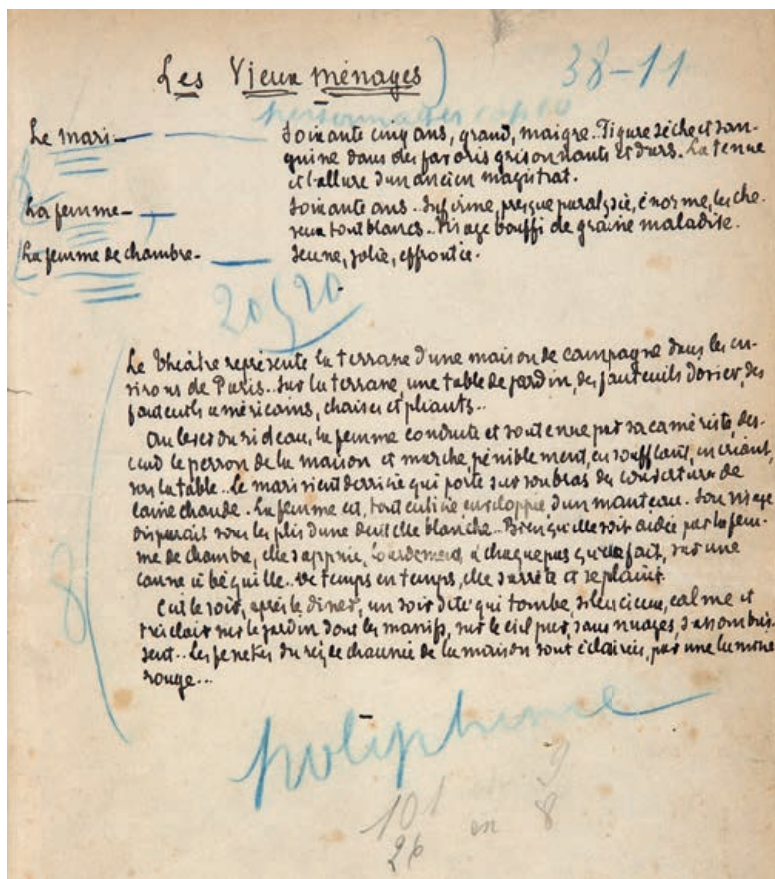 Les Vieux ménages
38-11
personnages
Le mari — Soixante cinq ans, grand, maigre. Figure sèche et san-
guine dans des favoris grisonnants et durs. La tenue
et l'allure d'un ancien magistrat.
La femme — Soixante ans. Infirme, presque paralysée, énorme, les che-
veux tout blancs. Visage bouffi de graisse maladive.
La femme de chambre — Jeune, jolie, effrontée.
20 20
Le théâtre représente la terrasse d'une maison de campagne dans les en-
virons de Paris.. Sur la terrasse, une table de jardin, des fauteuils d'osier, des
fauteuils américains, chaises et pliants..
Au lever du rideau, la femme conduite et soutenue par sa camériste, des-
cend le perron de la maison et marche, péniblement, en soufflant, en criant,
vers la table.. Le mari vient derrière qui porte sur son bras des couvertures de
laine chaude. La femme est, tout entière, enveloppée, d'un manteau. Son visage
disparaît sous les plis d'une dentelle blanche.. Bien qu'elle soit aidée par la fem-
me de chambre, elle s'appuie, lourdement, à chaque pas qu'elle fait, sur une
canne à béquille.. De temps en temps, elle s'arrête et se plaint.
C'est le soir, après le dîner, un soir d'été qui tombe, silencieux, calme et
très clair sur le jardin dont les massifs, sur le ciel pur, sans nuages, s'assombris-
sent.. Les fenêtres du rez de chaussée de la maison sont éclairées, par une lumière
rouge...
8
poliphime
101 9
26 en 8